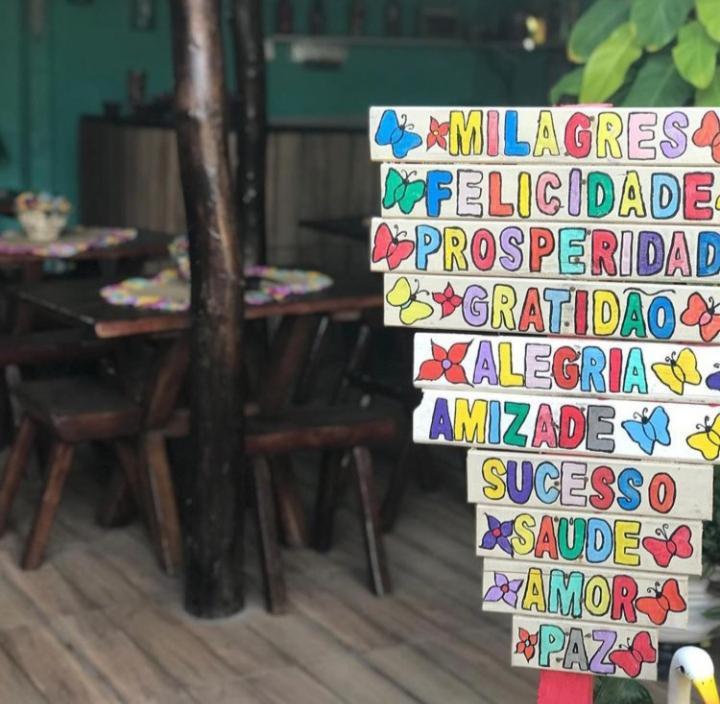 MILAGRES
FELICIDADE
PROSPERIDAD
GRATIDÃO
ALEGRIA
AMIZADE
SUCESSO
SAÚDE
AMOR
PAZ